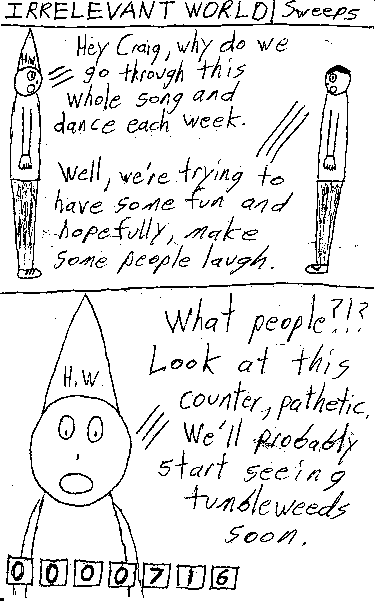 IRRELEVANT WORLD | Sweeps
H.W.
Hey Craig, why do we
go through this
whole song and
dance each week.
Well, we're trying to
have some fun and
hopefully, make
some people laugh.
H.W.
What people?!?
Look at this
counter, pathetic.
We'll probably
start seeing
tumbleweeds
soon.
0000716